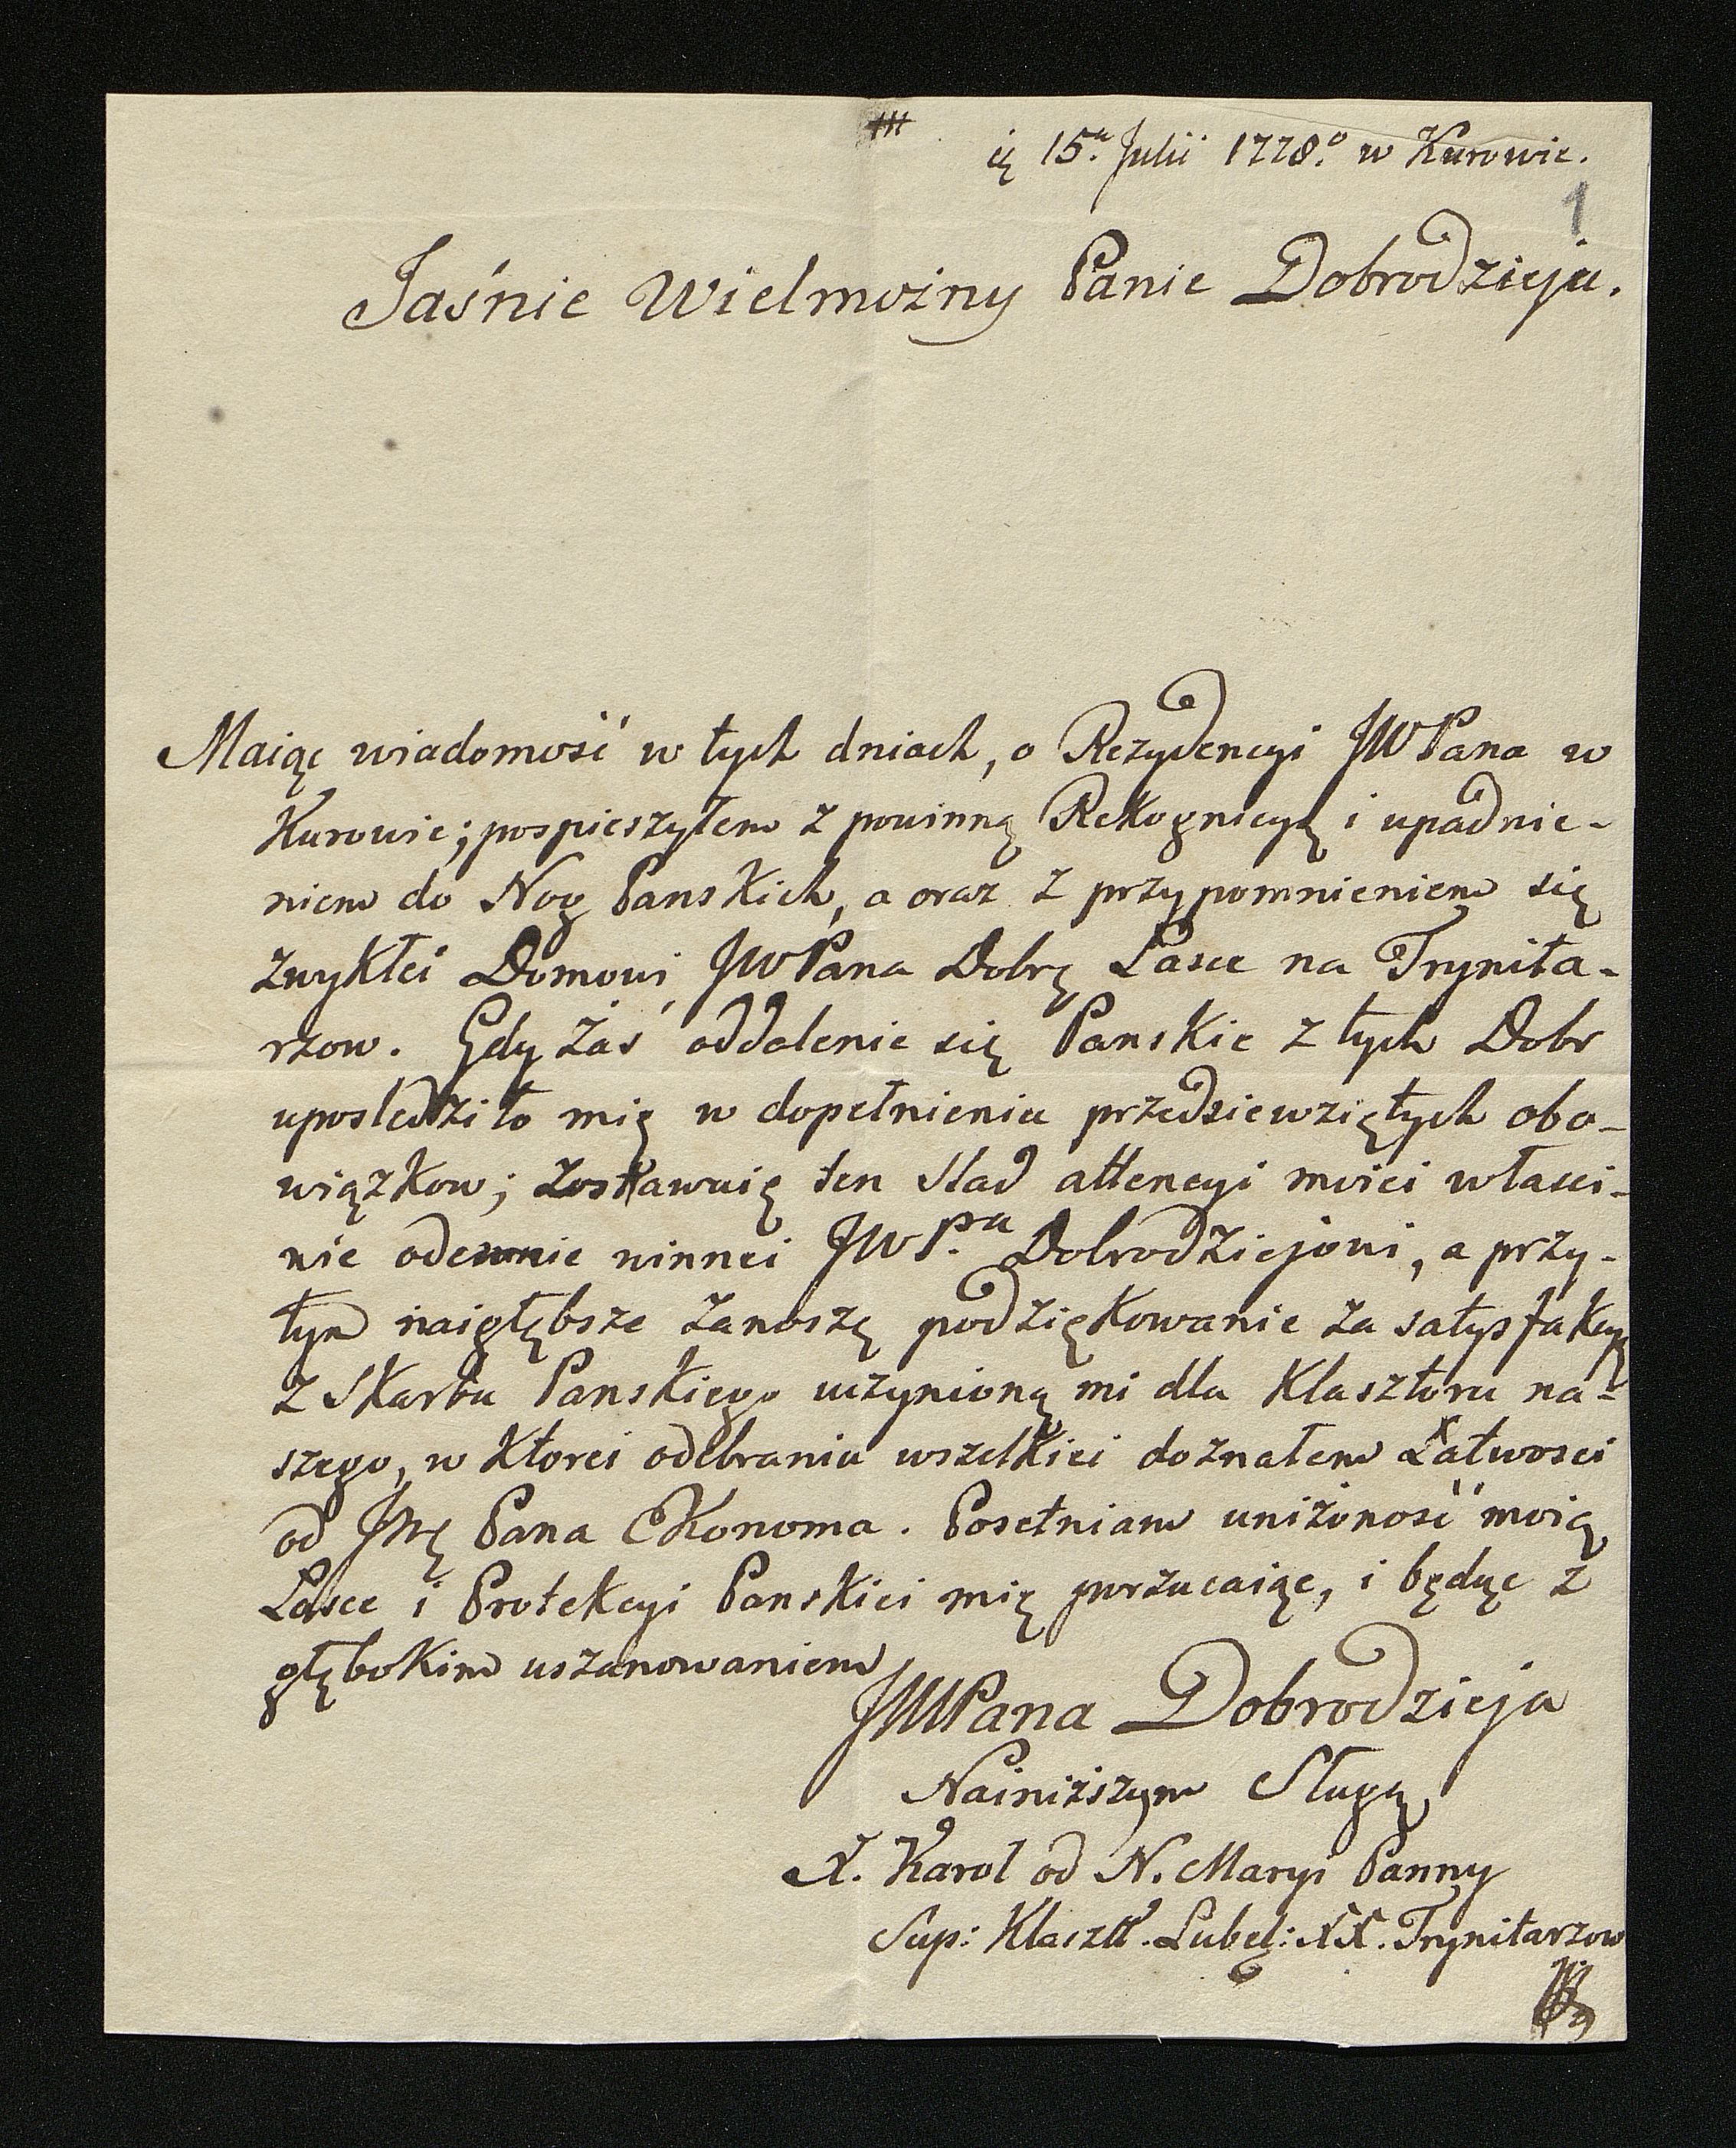 15.a Julii 1778.o w Kurowie.
1
Jaśnie Wielmożny Panie Dobrodzieju.
Maiąc wiadomość w tych dniach, o Rezydencyi JWPana w
Kurowie; pospieszyłem z powinną Rekognicyą i upadnie-
niem do Nog Panskich, a oraz z przypomnieniem się
zwykłei Domowi JWPana Dobrę Łasce na Trynita-
rzow. Gdy żaś oddalenie się Panskie z tych Dobr
uposledziło mię w dopełnieniu przedsiewziętych obo-
wiązkow; zostawuię ten slad attencyi moiei własci-
wie odemnie winnei JWP.nu Dobrodziejowi, a przy-
tym naigłębsze zanoszę podziękowanie za satysfakcyą
z Skarbu Panskiego uczynioną mi dla Klasztoru na-
szego, w ktorei odebraniu wszelkiei doznałem Łatwosci
od Jmę Pana Ekonoma. Posełniam uniżoność moię
Łasce i Protekcyi Panskiei mię porzucaiąc, i będąc z
głębokim uszanowaniem
JWPana Dobrodzieja
Nainiższym Sługą
X. Karol od N. Maryi Panny
Sup: Klaszt. Lubel: XX. Trynitarzow